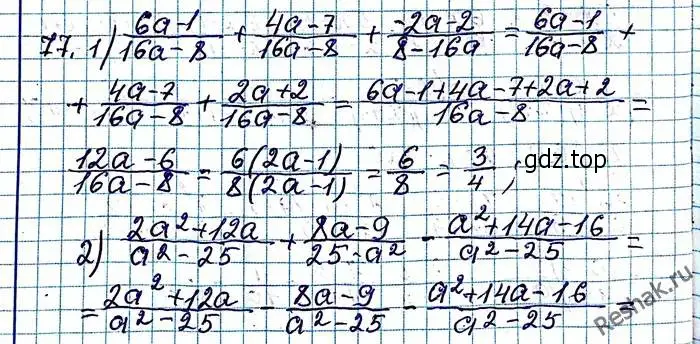 77. 1) (6a-1)/(16a-8) + (4a-7)/(16a-8) + (-2a-2)/(8-16a) = (6a-1)/(16a-8) +
+ (4a-7)/(16a-8) + (2a+2)/(16a-8) = (6a-1+4a-7+2a+2)/(16a-8) =
(12a-6)/(16a-8) = 6(2a-1)/8(2a-1) = 6/8 = 3/4 ;
gdz.top
2) (2a²+12a)/(a²-25) + (8a-9)/(25-a²) - (a²+14a-16)/(a²-25) =
= (2a²+12a)/(a²-25) - (8a-9)/(a²-25) - (a²+14a-16)/(a²-25) =
Reshak.ru